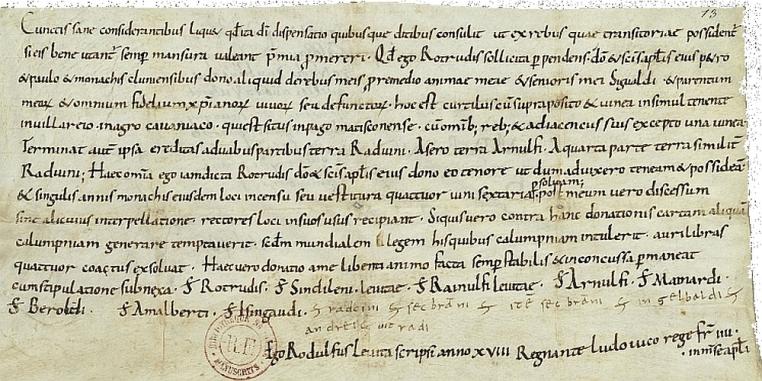 13
Cunctis sane considerantibus liquet qđ ita dī dispensatio quibusque ditibus consulit ut ex rebus quae transitoriae possidentr̄
si eis bene utantr̄ semp mansura valeant p̄mia p̄mereri. Qđ ego Rotrudis sollicita perpendens dō & scīs apl̄is eius petro
& paulo & monachis cluniensibus dono aliquid de rebus meis p remedio animae meae & senioris mei Sigualdi & parentum
meoꝝ & omnium fidelium xp̄ianoꝝ vivoꝝ seu defunctoꝝ. hoc est curtilus cū supraposito & vinea insimul tenente
in villa in agro cavaniaco. qui est situs in pago matisconense. cū omīb; reb; & adiacenciis suis excepto una vinea
Terminat autē ipsa ereditas a duabus partibus terra Raduini. A sero terra Arnulfi. A quarta parte terra similit̄
Raduini; Haec om̄ia ego iamdicta Rotrudis dō & scīs apl̄is eius dono eo tenore ut dum advixero teneam & possideā
& singulis annis monachis eiusdem loci in censu seu vestitura quattuor vini sextarias psolvam; post meum vero discessum
sine alicuius interpellatione rectores loci in suos usus recipiant. Si quis vero contra hanc donationis cartam aliquā
calumpniam generare temptaverit. scđm mundialem legem his quibus calumpniam intulerit. auri libras
quattuor coactus exsolvat. Haec vero donatio a me libenti animo facta semp stabilis & inconcussa pmaneat
cum stipulatione subnexa. S Rotrudis. S Sindileni levitae. S Rainulfi levitae. S Arnulfi. S Mainardi.
S Beroldi. S Amalberti. S Isingaudi. S radoini S secbrani S itē secbrani S ingelbaldi S
andreae
B.F.
MANUSCRITS
Ego Rodulfus Levita scripsi anno XVIII Regnante ludovico rege fr̄ IIII.